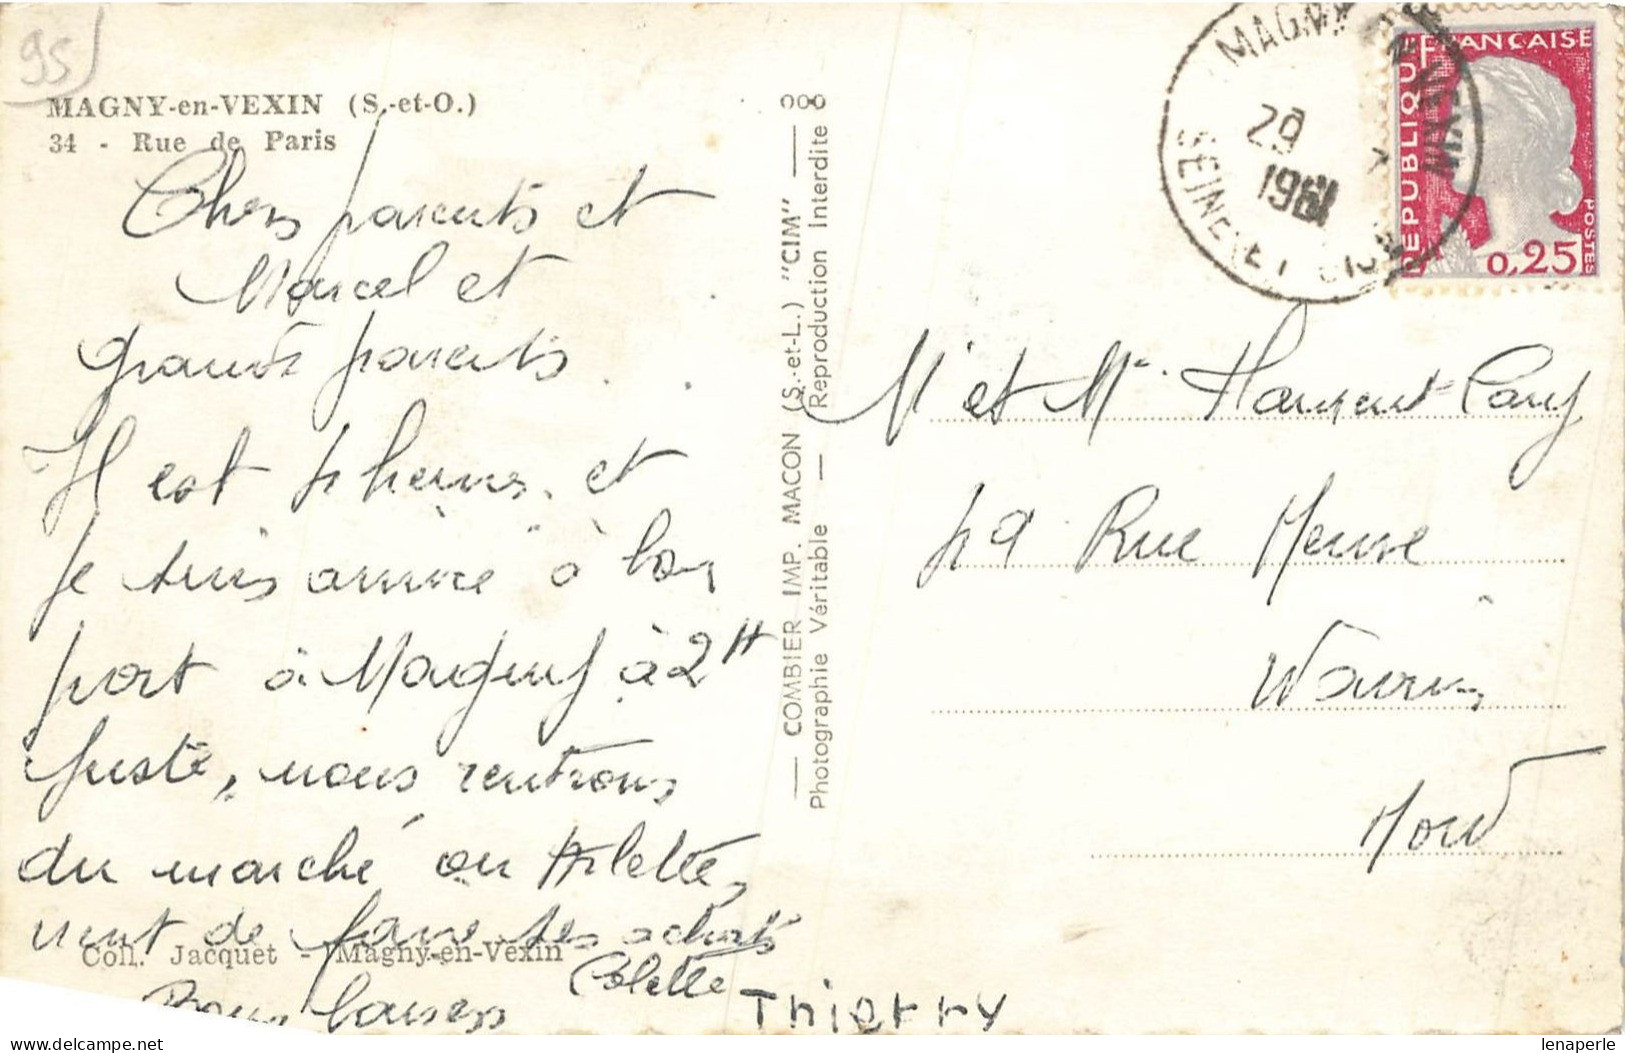 95
MAGNY-en-VEXIN (S.-et-O.)
34 - Rue de Paris
Chers parents et
Marcel et
grands parents.
Il est heures et
Je suis arrivé à bon
port à Magny à 2H
juste, nous rentrons
du marché ou Arlette,
vient de faire ses achats
Coll. Jacquet - Magny-en-Vexin
Bons baisers
Colette
Thierry
COMBIER IMP. MACON (S.-et-L.) "CIM"
Photographie Véritable — Reproduction Interdite
MAGNY EN VEXIN
29
1961
SEINE ET OISE
RÉPUBLIQUE FRANÇAISE
POSTES
0,25
M et Mme
Rue
Wavrin
Nord
lenaperle